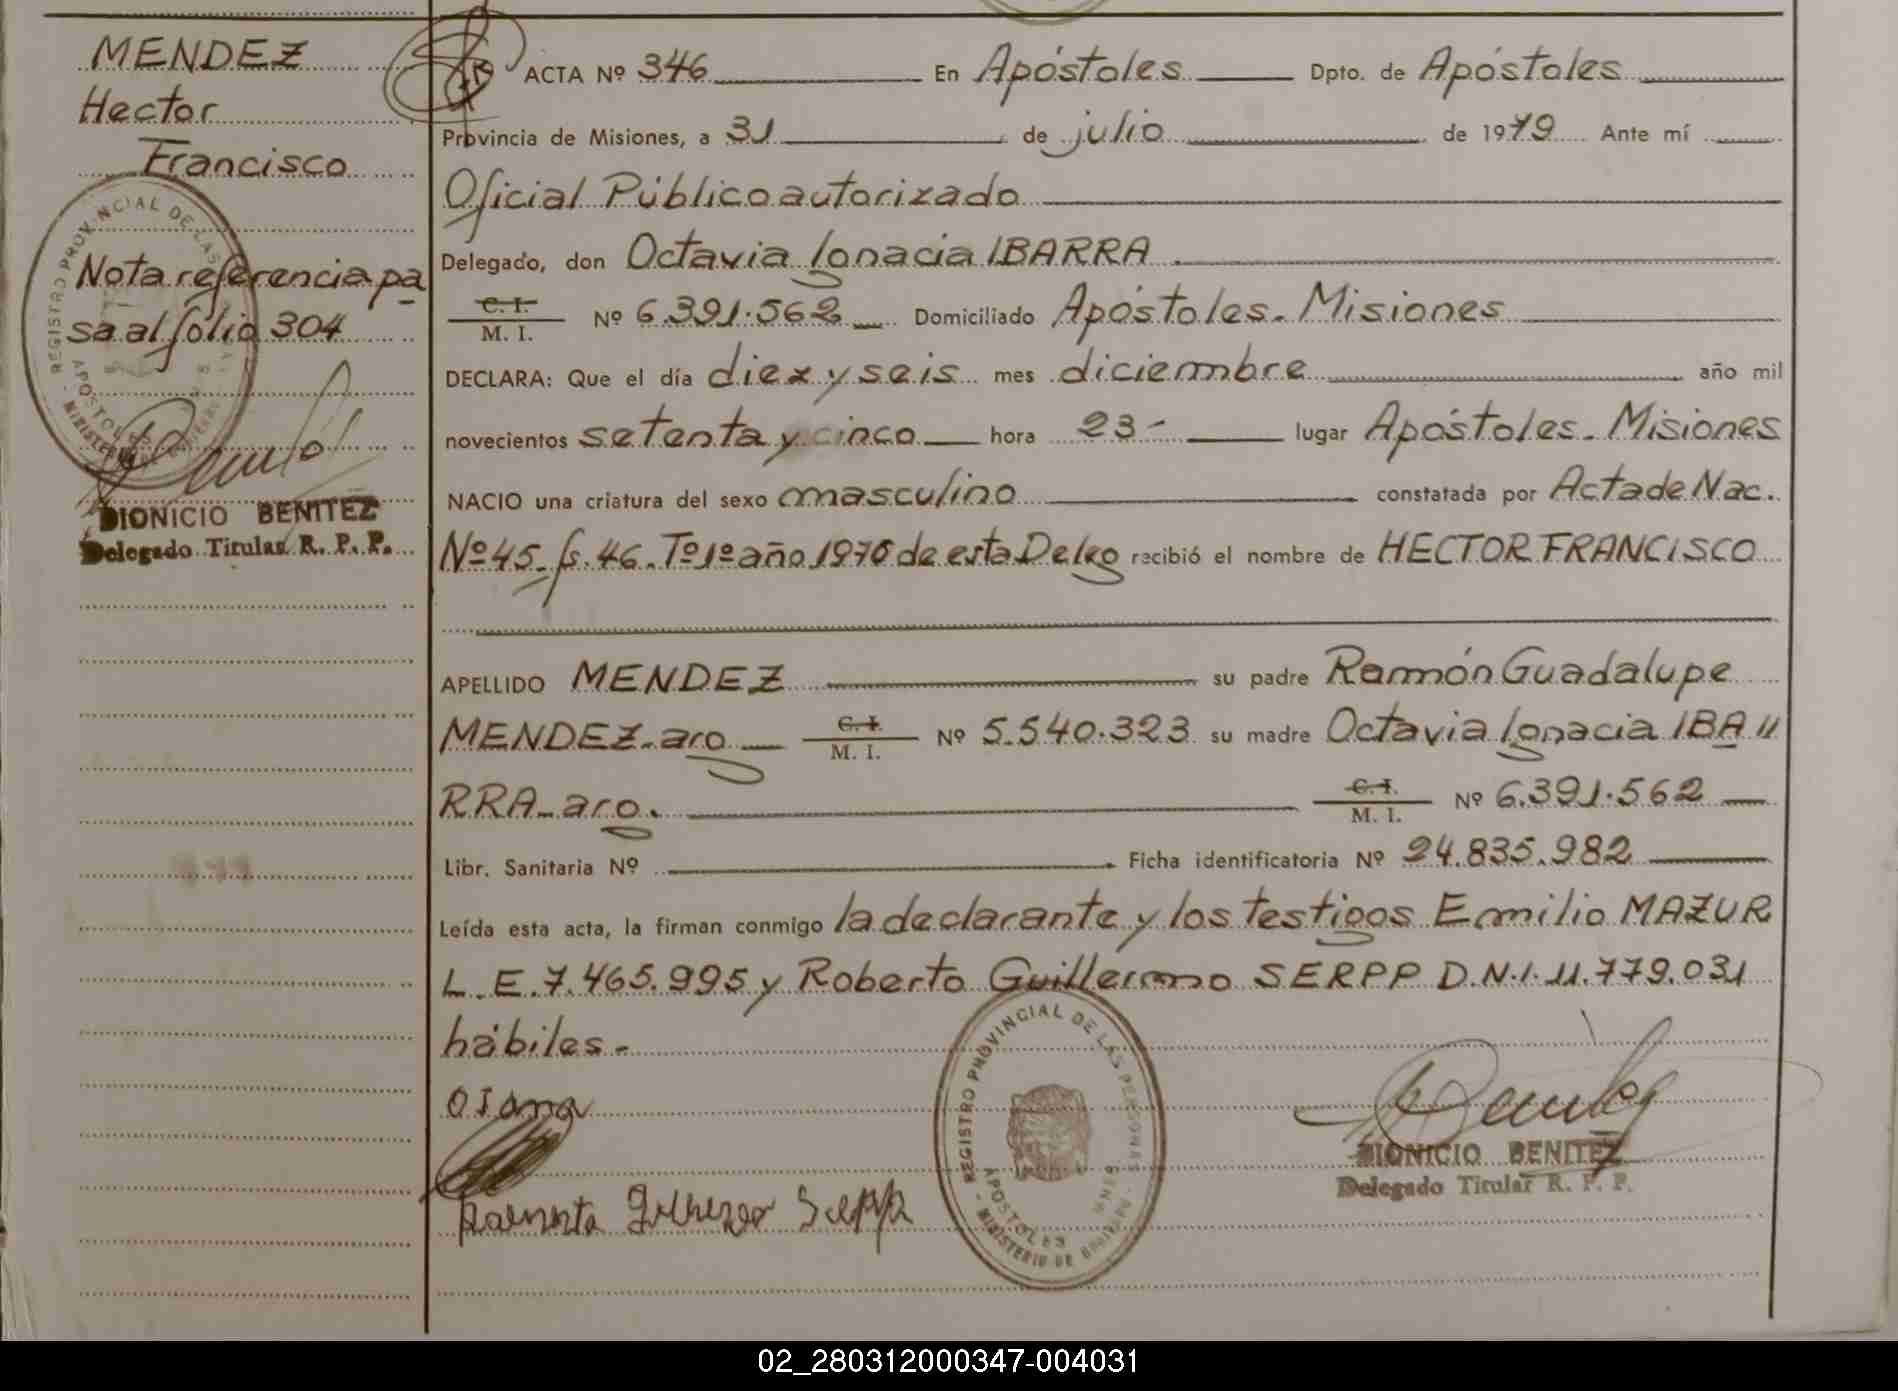 MENDEZ
Hector
Francisco
Nota referencia pa
sa al folio 304
REGISTRO PROVINCIAL DE LAS
APOSTOLES
DIONICIO BENITEZ
Delegado Titular R. P. P.
ACTA Nº 346 En Apóstoles Dpto. de Apóstoles
Provincia de Misiones, a 31 de julio de 1979 Ante mí
Oficial Público autorizado
Delegado, don Octavia Ignacia IBARRA
C. I.
M. I. Nº 6.391.562 Domiciliado Apóstoles - Misiones
DECLARA: Que el día diez y seis mes diciembre año mil
novecientos setenta y cinco hora 23- lugar Apóstoles - Misiones
NACIO una criatura del sexo masculino constatada por Acta de Nac.
Nº 45 - fs. 46 - Tº 1º año 1976 de esta Delgo recibió el nombre de HECTOR FRANCISCO
APELLIDO MENDEZ su padre Ramón Guadalupe
MENDEZ - arg C. I. M. I. Nº 5.540.323 su madre Octavia Ignacia IBA
RRA - arg. C. I. M. I. Nº 6.391.562
Libr. Sanitaria Nº Ficha identificatoria Nº 24.835.982
Leída esta acta, la firman conmigo la declarante y los testigos Emilio MAZUR
L. E. 7.465.995 y Roberto Guillermo SERPP D.N.I. 11.779.031
hábiles -
REGISTRO PROVINCIAL DE LAS PERSONAS
APOSTOLES
MINISTERIO DE
DIONICIO BENITEZ
Delegado Titular R. P. P.
02_280312000347-004031